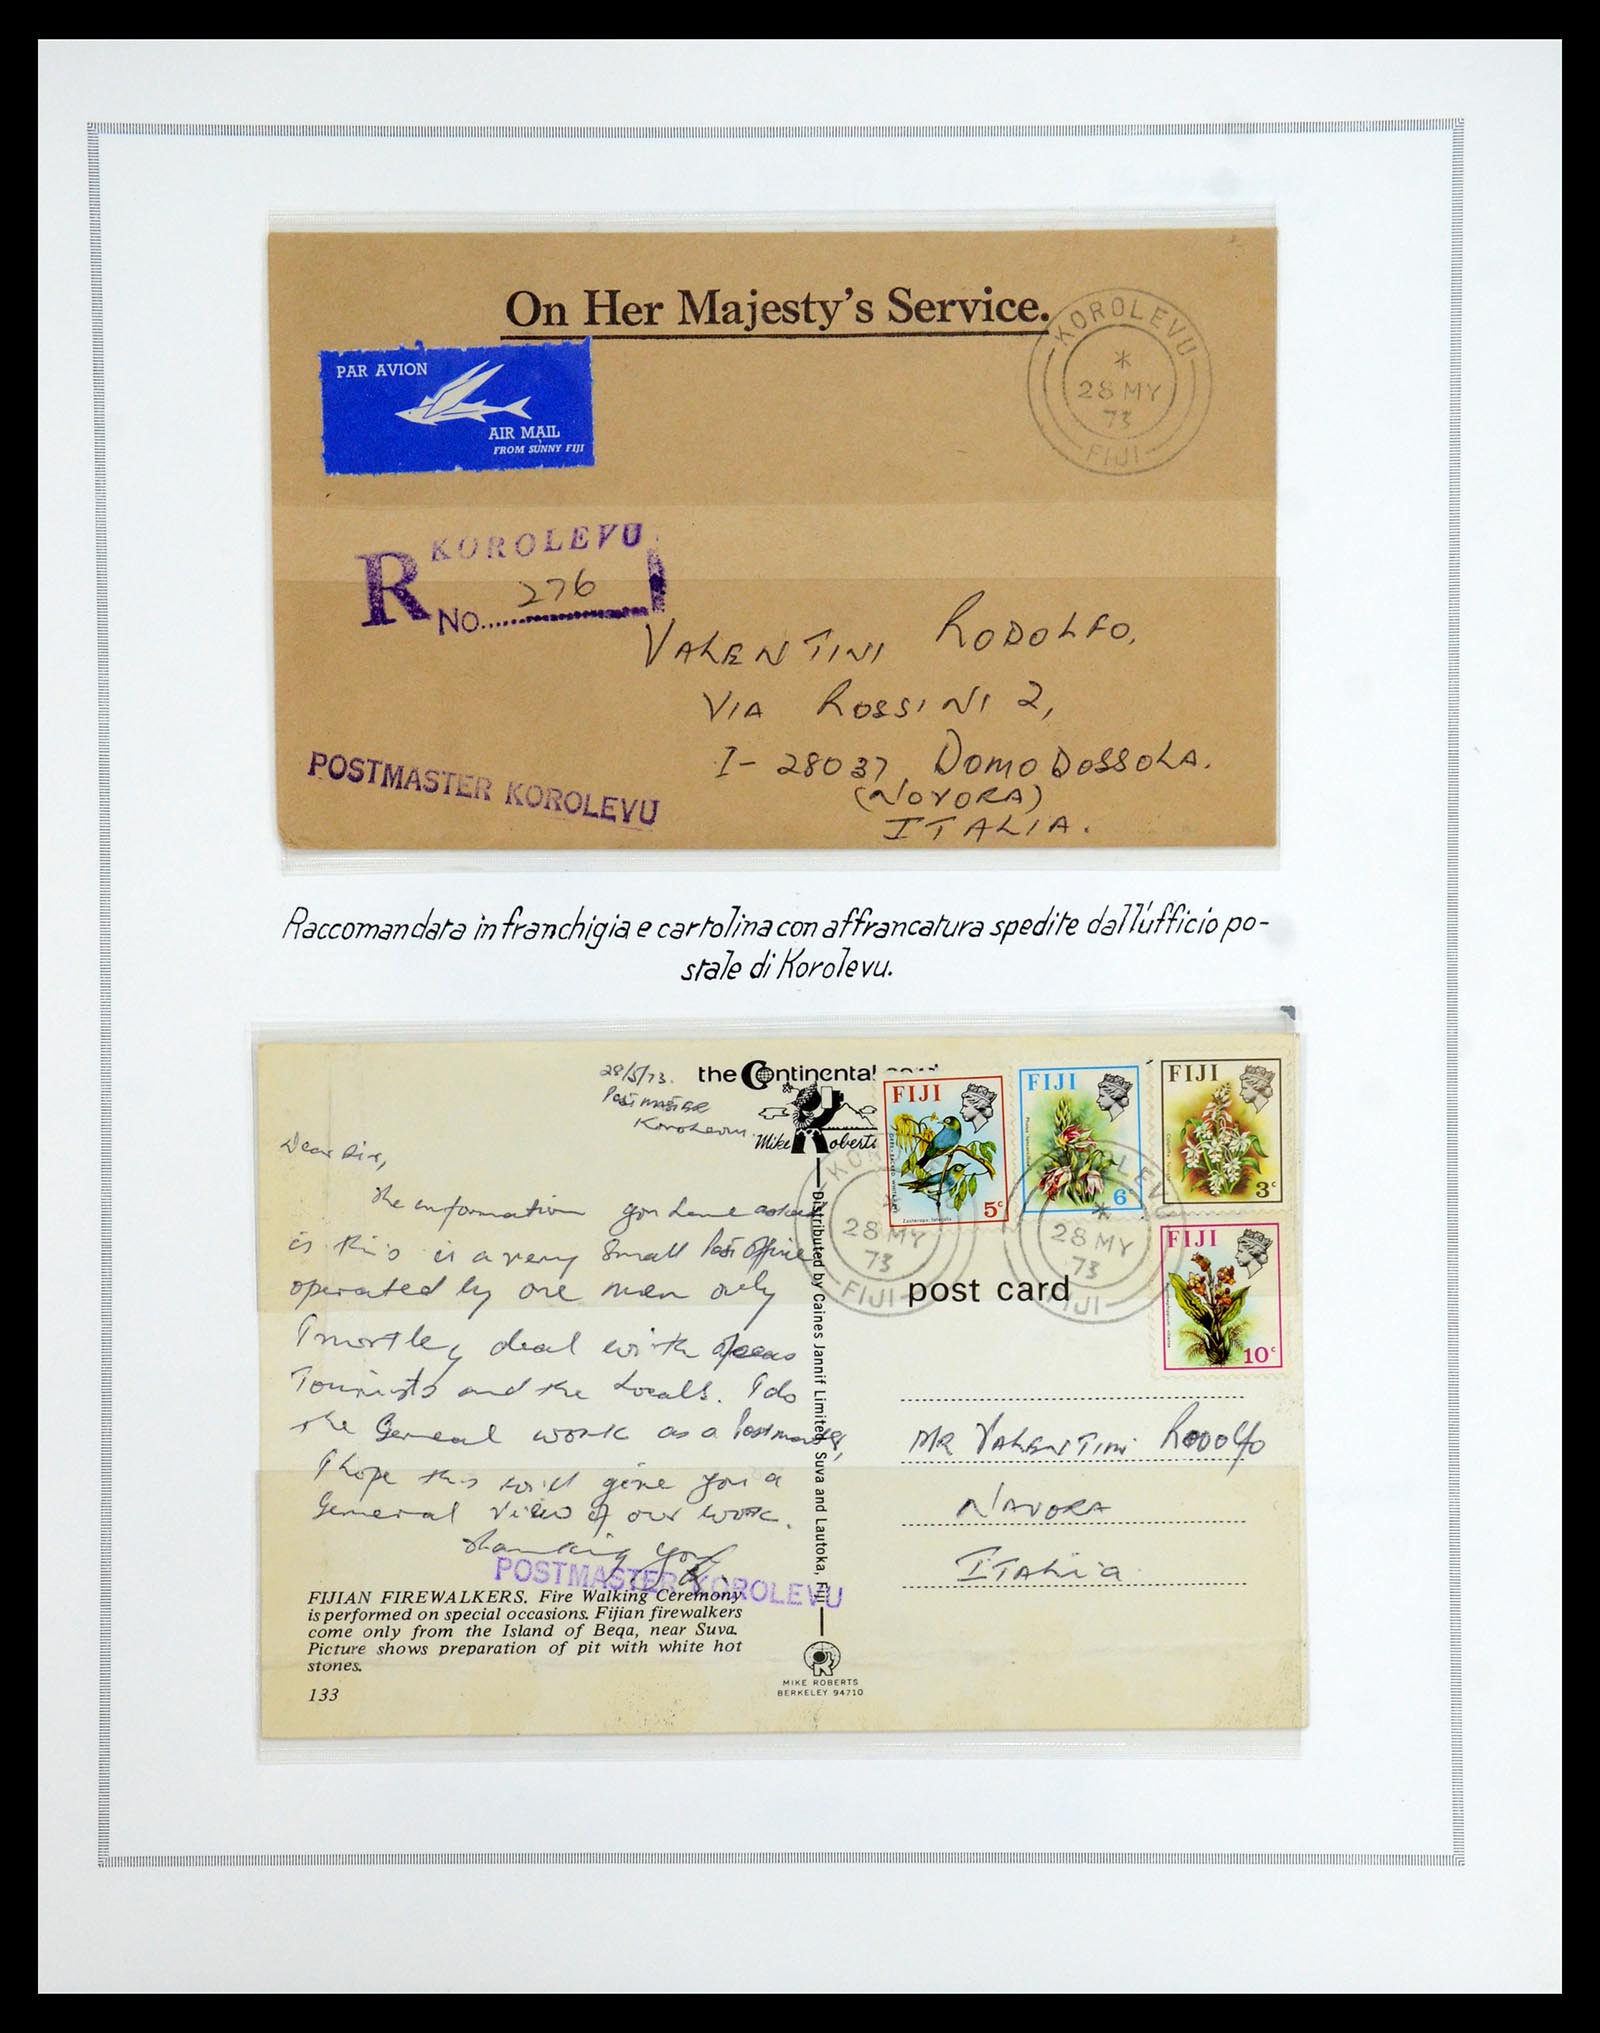 On Her Majesty's Service.
KOROLEVU
*
28 MY
73
FIJI
PAR AVION
AIR MAIL
FROM SUNNY FIJI
KOROLEVU
R
No...... 276
VALENTINI RODOLFO,
VIA ROSSINI 2,
I-28037, DOMODOSSOLA.
(NOVORA)
ITALIA.
POSTMASTER KOROLEVU
Raccomandata in franchigia e cartolina con affrancatura spedite dall'ufficio po-
stale di Korolevu.
28/5/73.
Postmaster
Korolevu.
the Continental card
Mike Roberts
Dear Sir,
The information you have asked
is this is a very small Post Office
operated by one man only
I mostley deal with
Tourists and the Locals. I do
the General work as a Postmaster,
I hope this will give you a
General view of our work.
Thanking you
POSTMASTER KOROLEVU
FIJIAN FIREWALKERS. Fire Walking Ceremony
is performed on special occasions. Fijian firewalkers
come only from the Island of Beqa, near Suva.
Picture shows preparation of pit with white hot
stones.
133
Distributed by Caines Jannif Limited, Suva and Lautoka, Fiji
MIKE ROBERTS
BERKELEY 94710
FIJI
5c
Zosterops lateralis
FIJI
6c
FIJI
3c
FIJI
10c
KOROLEVU
28 MY
73
FIJI
KOROLEVU
*
28 MY
73
FIJI
post card
MR VALENTINI Rodolfo
NAVORA
ITALIA